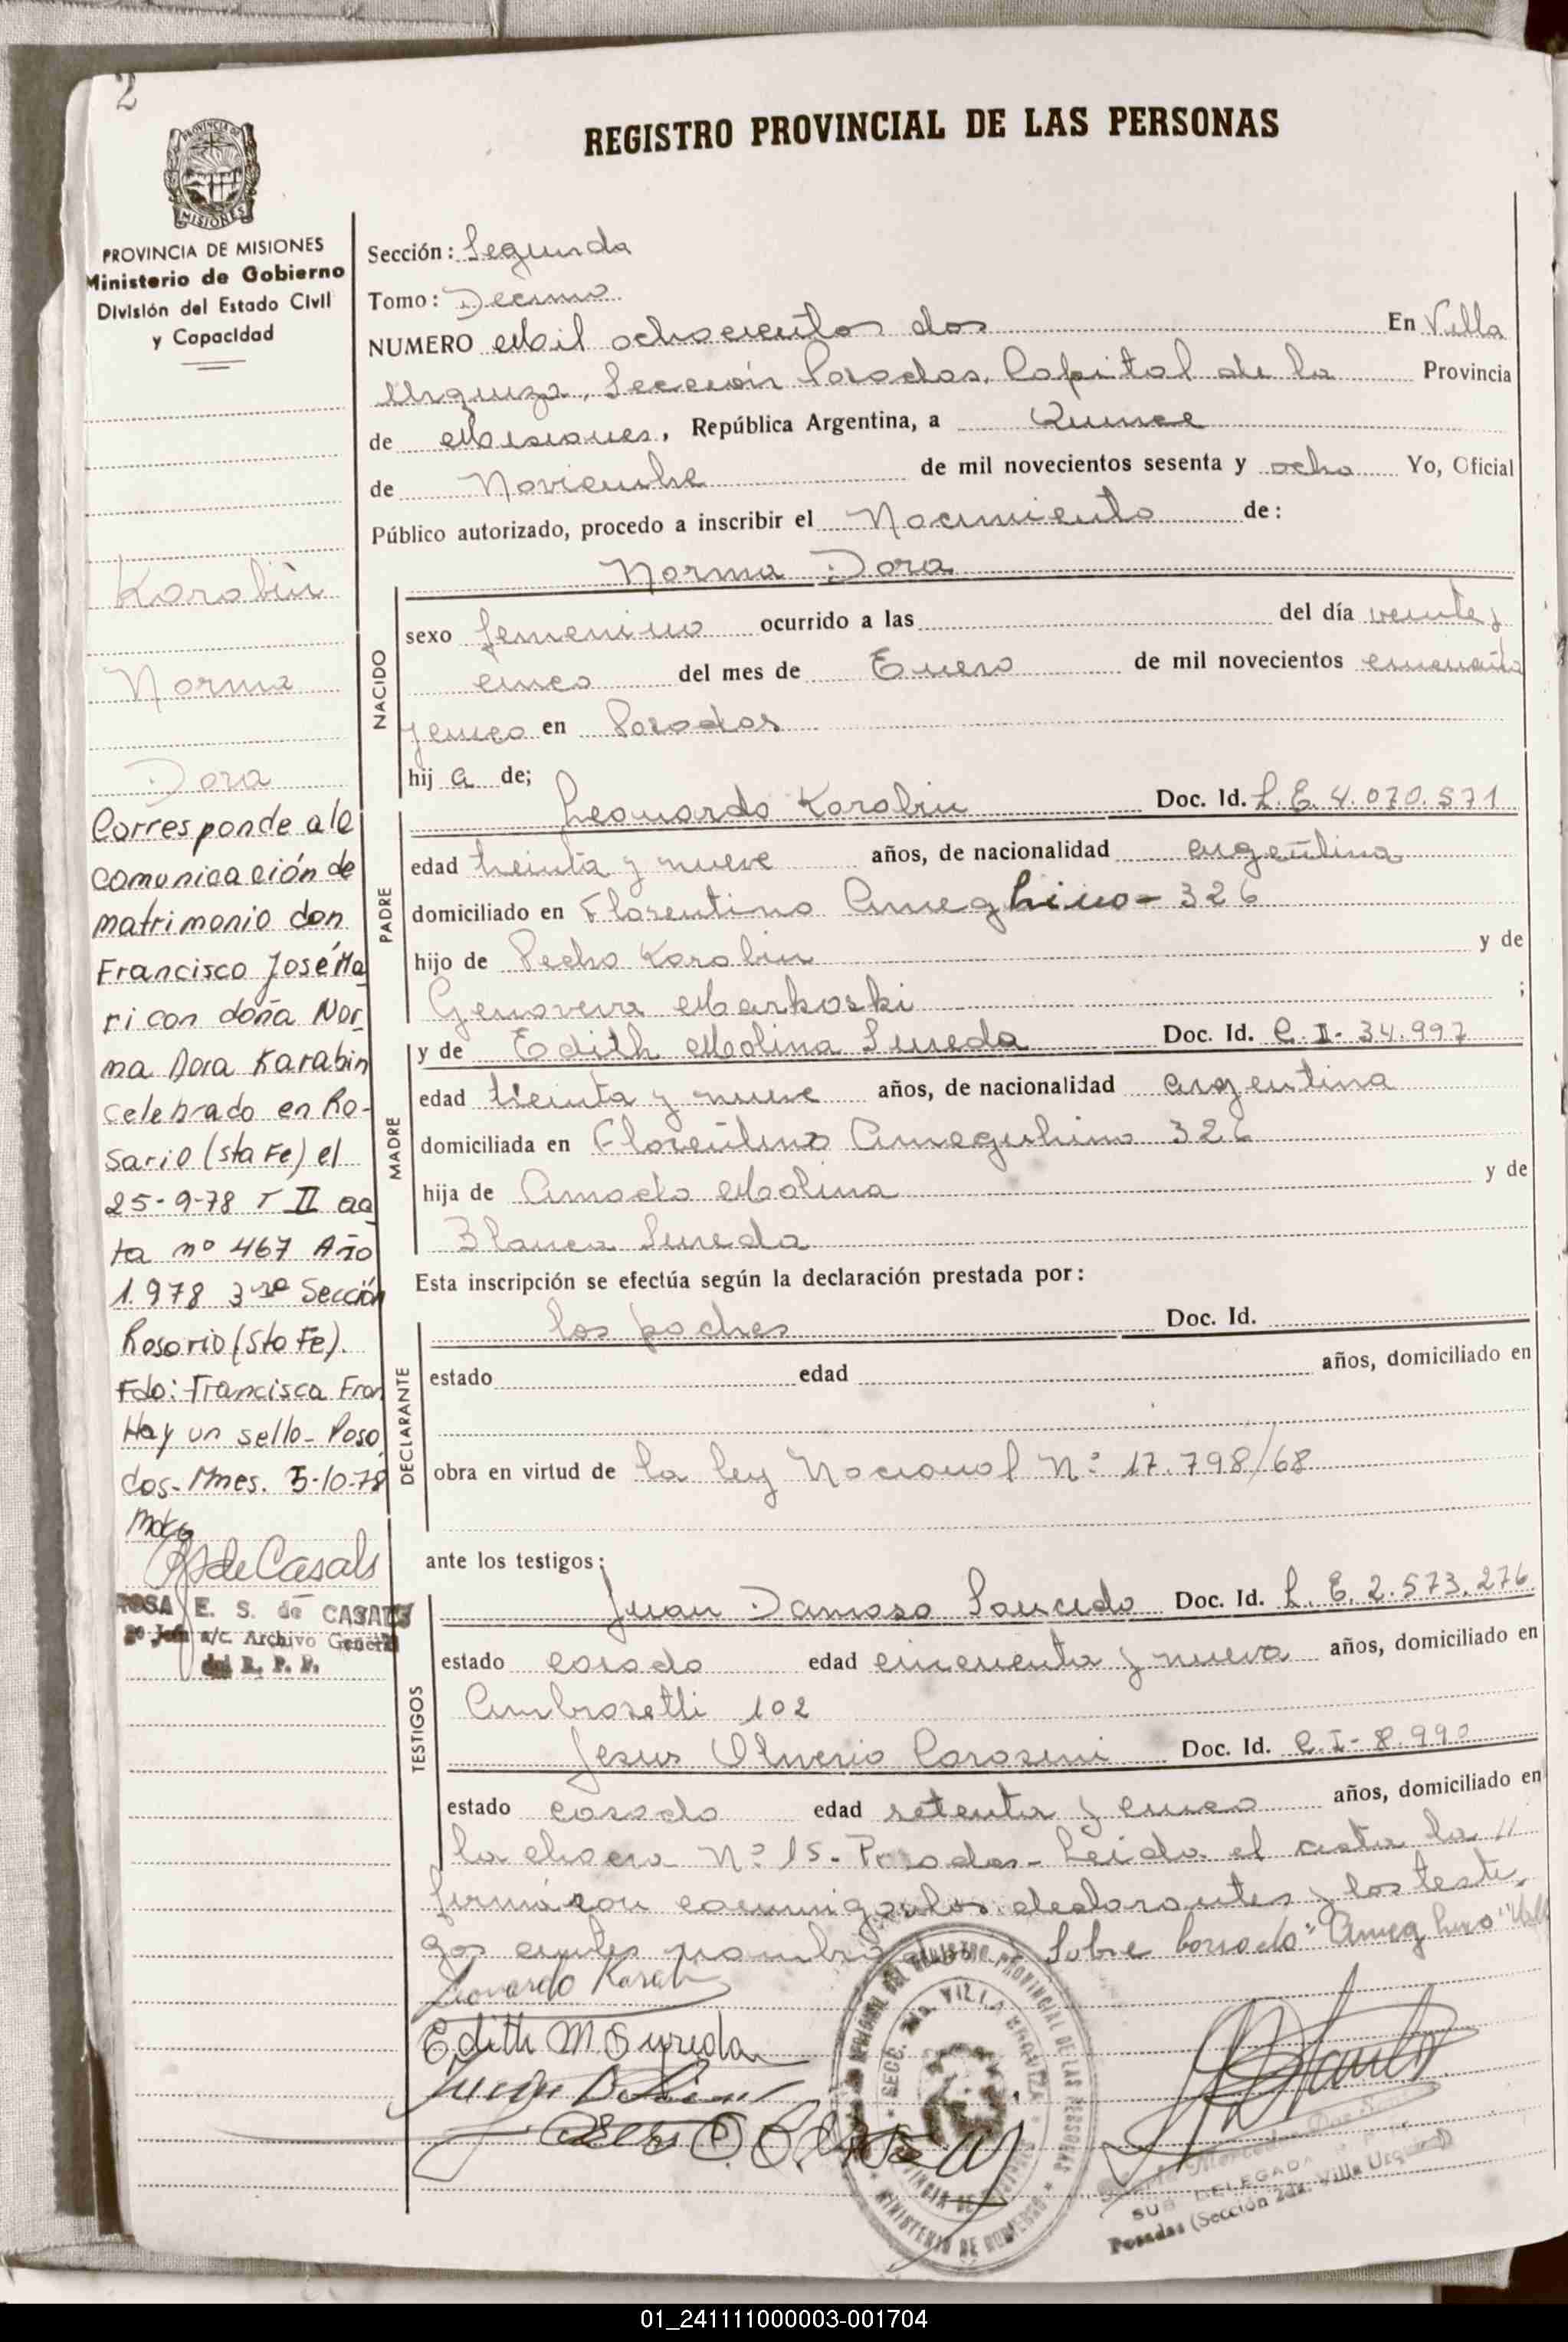 2
REGISTRO PROVINCIAL DE LAS PERSONAS
MISIONES
PROVINCIA DE MISIONES
Ministerio de Gobierno
División del Estado Civil
y Capacidad
Karabin
Norma
Dora
Corresponde a la
comunicación de
matrimonio don
Francisco José Ma
ri con doña Nor_
ma Dora Karabin
celebrado en Ro-
sario (sta Fe) el
25-9-78 T II ac
ta nº 467 Año
1.978 3ra Sección
Rosario (Sta Fe).
Fdo: Francisca Fran
Hay un sello - Posa
das - Mnes. 5-10-78
ROSA E. S. de CASALS
a/c. Archivo General
del R. P. P.
Sección: Segunda
Tomo: Decimo
NUMERO Mil ochocientos dos En Villa
Urquiza, Sección Posadas, Capital de la Provincia
de Misiones, República Argentina, a Quince
de Noviembre de mil novecientos sesenta y ocho Yo, Oficial
Público autorizado, procedo a inscribir el Nacimiento de:
Norma Dora
NACIDO
sexo femenino ocurrido a las del día veinte y
cinco del mes de Enero de mil novecientos cincuenta
y cinco en Posadas
hij a de;
PADRE
Leonardo Karabin Doc. Id. L.E. 4.070.571
edad treinta y nueve años, de nacionalidad argentina
domiciliado en Florentino Ameghino - 326
hijo de Pedro Karabin y de
Genoveva Markoski ;
MADRE
y de Edith Molina Sureda Doc. Id. C.I- 34.997
edad treinta y nueve años, de nacionalidad argentina
domiciliada en Florentino Ameguhino 326
hija de Amado Molina y de
Blanca Sureda
Esta inscripción se efectúa según la declaración prestada por:
DECLARANTE
los padres Doc. Id.
estado edad años, domiciliado en
obra en virtud de la ley Nacional Nº 17.798/68
ante los testigos:
TESTIGOS
Juan Damaso Saucedo Doc. Id. L.E. 2.573.276
estado casado edad cincuenta y nueve años, domiciliado en
Ambrosetti 102
Jesus Olinerio Carosini Doc. Id. C.I- 8.990
estado casado edad setenta y cinco años, domiciliado en
la chacra Nº 15 - Posadas - Leida el acta la //
firmaron conmigo los declarantes y los testi
gos Sobre borrado "Ameghino" Vale
Leonardo Karabin
Edith M Sureda
SECC. 2da. VILLA URQUIZA
REGISTRO PROVINCIAL DE LAS PERSONAS
MINISTERIO DE GOBIERNO
SUB DELEGADA
Posadas (Sección 2da. Villa Urquiza)
01_241111000003-001704